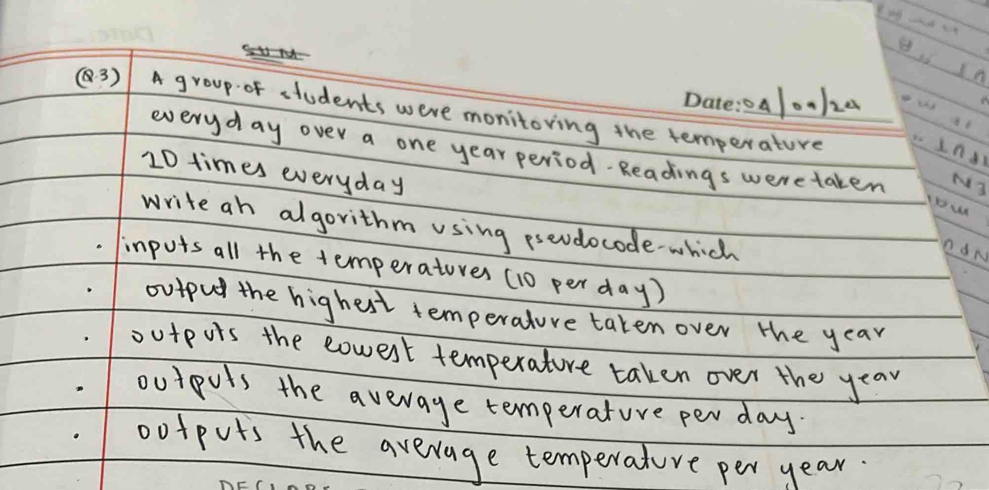 SUM
Date: 04/09/24
(Q.3) A group of students were monitoring the temperature
everyday over a one year period. Readings were taken
10 times everyday
Write an algorithm using pseudocode which
• inputs all the temperatures (10 per day)
• output the highest temperature taken over the year
• outputs the lowest temperature taken over the year
• outputs the average temperature per day.
• outputs the average temperature per year.